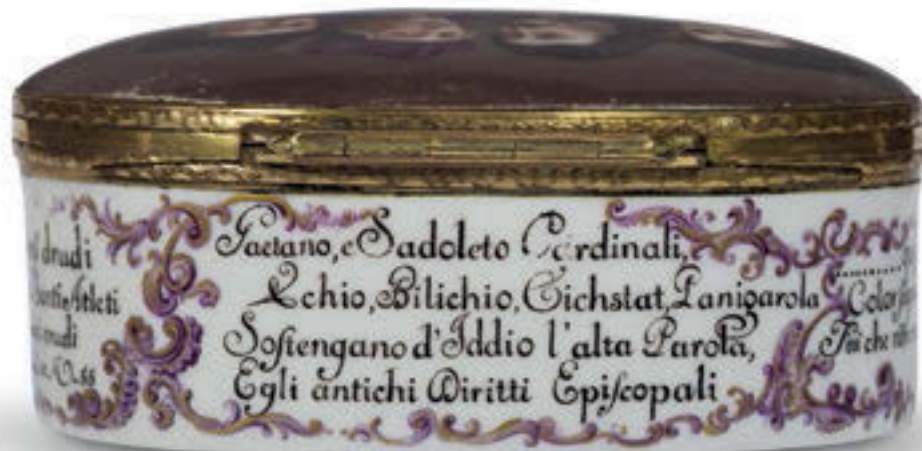 drudi
Gaetano, e Sadoleto Cardinali,
Echio, Bilichio, Eichstat, Panigarola
Softengano d'Iddio l'alta Parola,
Egli antichi Diritti Epifcopali
Atleti
che